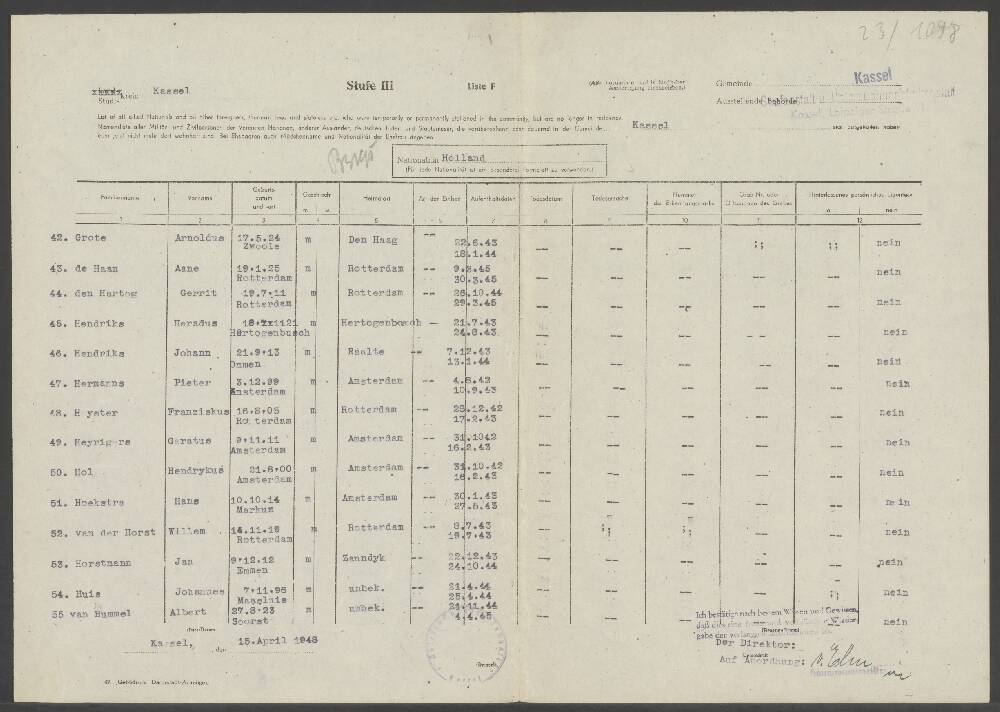 23/ 1098
Stufe III
Liste F
Gemeinde
Kassel
Stadtkreis Kassel
Ausstellende Behörde
List of all allied Nationals and all other foreigners, German Jews and stateless etc. who were temporarily or permanently stationed in the community, but are no longer in residence.
Kassel
Nationalität Holland
(Für jede Nationalität ist ein besonderes Formblatt zu verwenden)
Familienname Vorname Geburtsdatum und -ort Geschlecht m w Heimatort Aufenthaltsdaten Todesdatum Todesursache Nummer Grab Nr. oder
1 2 3 4 5 6 7 8 9 10 11 12
42. Grote Arnoldus 17.5.24 m Den Haag -- 22.6.43 -- -- -- ;; ;; nein
Zwoole 18.1.44
43. de Haan Aane 19.1.25 m Rotterdam -- 9.3.45 -- -- -- -- -- nein
Rotterdam 30.3.45
44. den Hartog Gerrit 19.7.11 m Rotterdam -- 28.10.44 -- -- -- -- -- nein
Rotterdam 29.3.45
45. Hendriks Heradus m Hertogenbosch -- 21.7.43 -- -- -- -- -- nein
Hertogenbusch 24.8.43
46. Hendriks Johann 21.9.13 m Raalte -- 7.12.43 -- -- -- -- -- nein
Ommen 13.1.44
47. Hermanns Pieter 3.12.99 m Amsterdam -- 4.8.42 -- -- -- -- -- nein
Amsterdam 10.9.43
48. H yster Franziskus 16.8.05 m Rotterdam -- 28.12.42 -- -- -- -- -- nein
Rotterdam 17.2.43
49. Heyrigers Geratus 9.11.11 m Amsterdam -- 31.1042 -- -- -- -- -- nein
Amsterdam 16.2.43
50. Hol Hendrykus 21.8.00 m Amsterdam -- 31.10.42 -- -- -- -- -- nein
Amsterdam 16.2.43
51. Hoekstra Hans 10.10.14 m Amsterdam -- 30.1.43 -- -- -- -- -- nein
Markum 27.5.43
52. van der Horst Willem 14.11.19 m Rotterdam -- 8.7.43 -- ;; ;; -- -- nein
Rotterdam 19.7.43
53. Horstmann Jan 9.12.12 m Zanndyk -- 22.12.43 -- -- -- -- -- nein
Emmen 24.10.44
54. Huis Johannes 7.11.96 m unbek. -- 21.4.44 -- -- -- -- ;; nein
25.4.44
55 van Hummel Albert 27.8.23 m unbek. -- 21.11.44 -- -- -- -- nein
Soorst 4.4.45
Ich bestätige nach bestem Wissen und Gewissen,
Kassel, den 15.April 1948
Der Direktor:
Auf Anordnung: